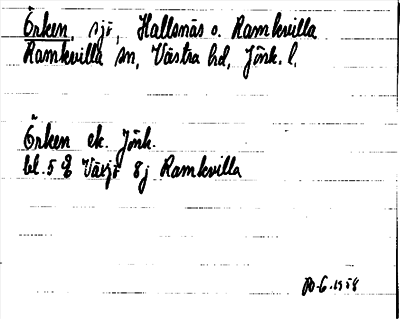 Örken, sjö, Hallsnäs o. Ramkvilla
Ramkvilla sn, Västra hd, Jönk. l.
Örken ek. Jönk.
bl. 5 Ö Växjö 8j Ramkvilla
6.1958